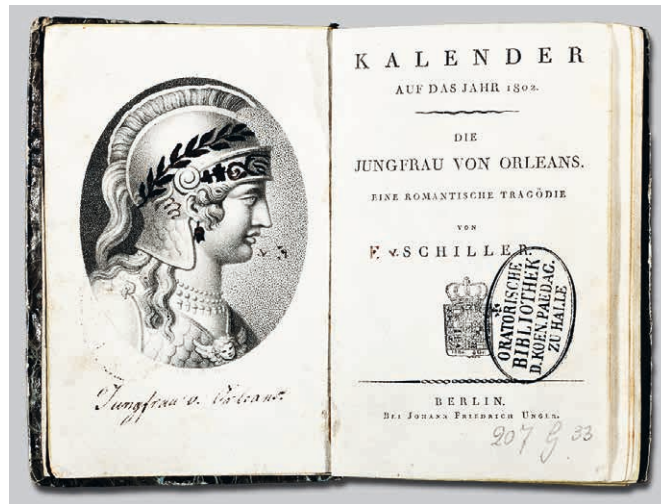 Jungfrau v. Orleans.
KALENDER
AUF DAS JAHR 1802.
DIE
JUNGFRAU VON ORLEANS.
EINE ROMANTISCHE TRAGÖDIE
VON
F. v. SCHILLER.
ORATORISCHE
BIBLIOTHEK
D. KOEN. PAEDAG.
ZU HALLE
BERLIN.
BEI JOHANN FRIEDRICH UNGER.
207 G 33